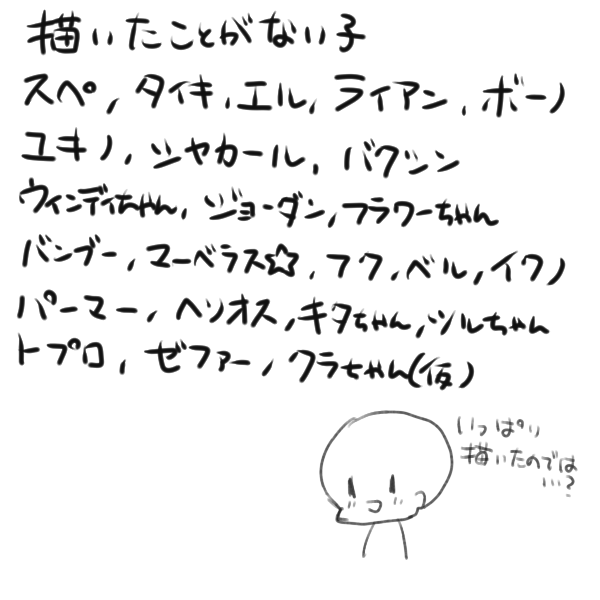 描いたことがない子
スペ, タイキ, エル, ライアン, ボーノ
ユキノ, シャカール, バクシン
ウィンディちゃん, ジョーダン, フラワーちゃん
バンブー, マーベラス☆, フク, ベル, イクノ
パーマー, ヘリオス, キタちゃん, ツルちゃん
トプロ, ゼファー, クラちゃん(仮)
いっぱい
描いたのでは
…?